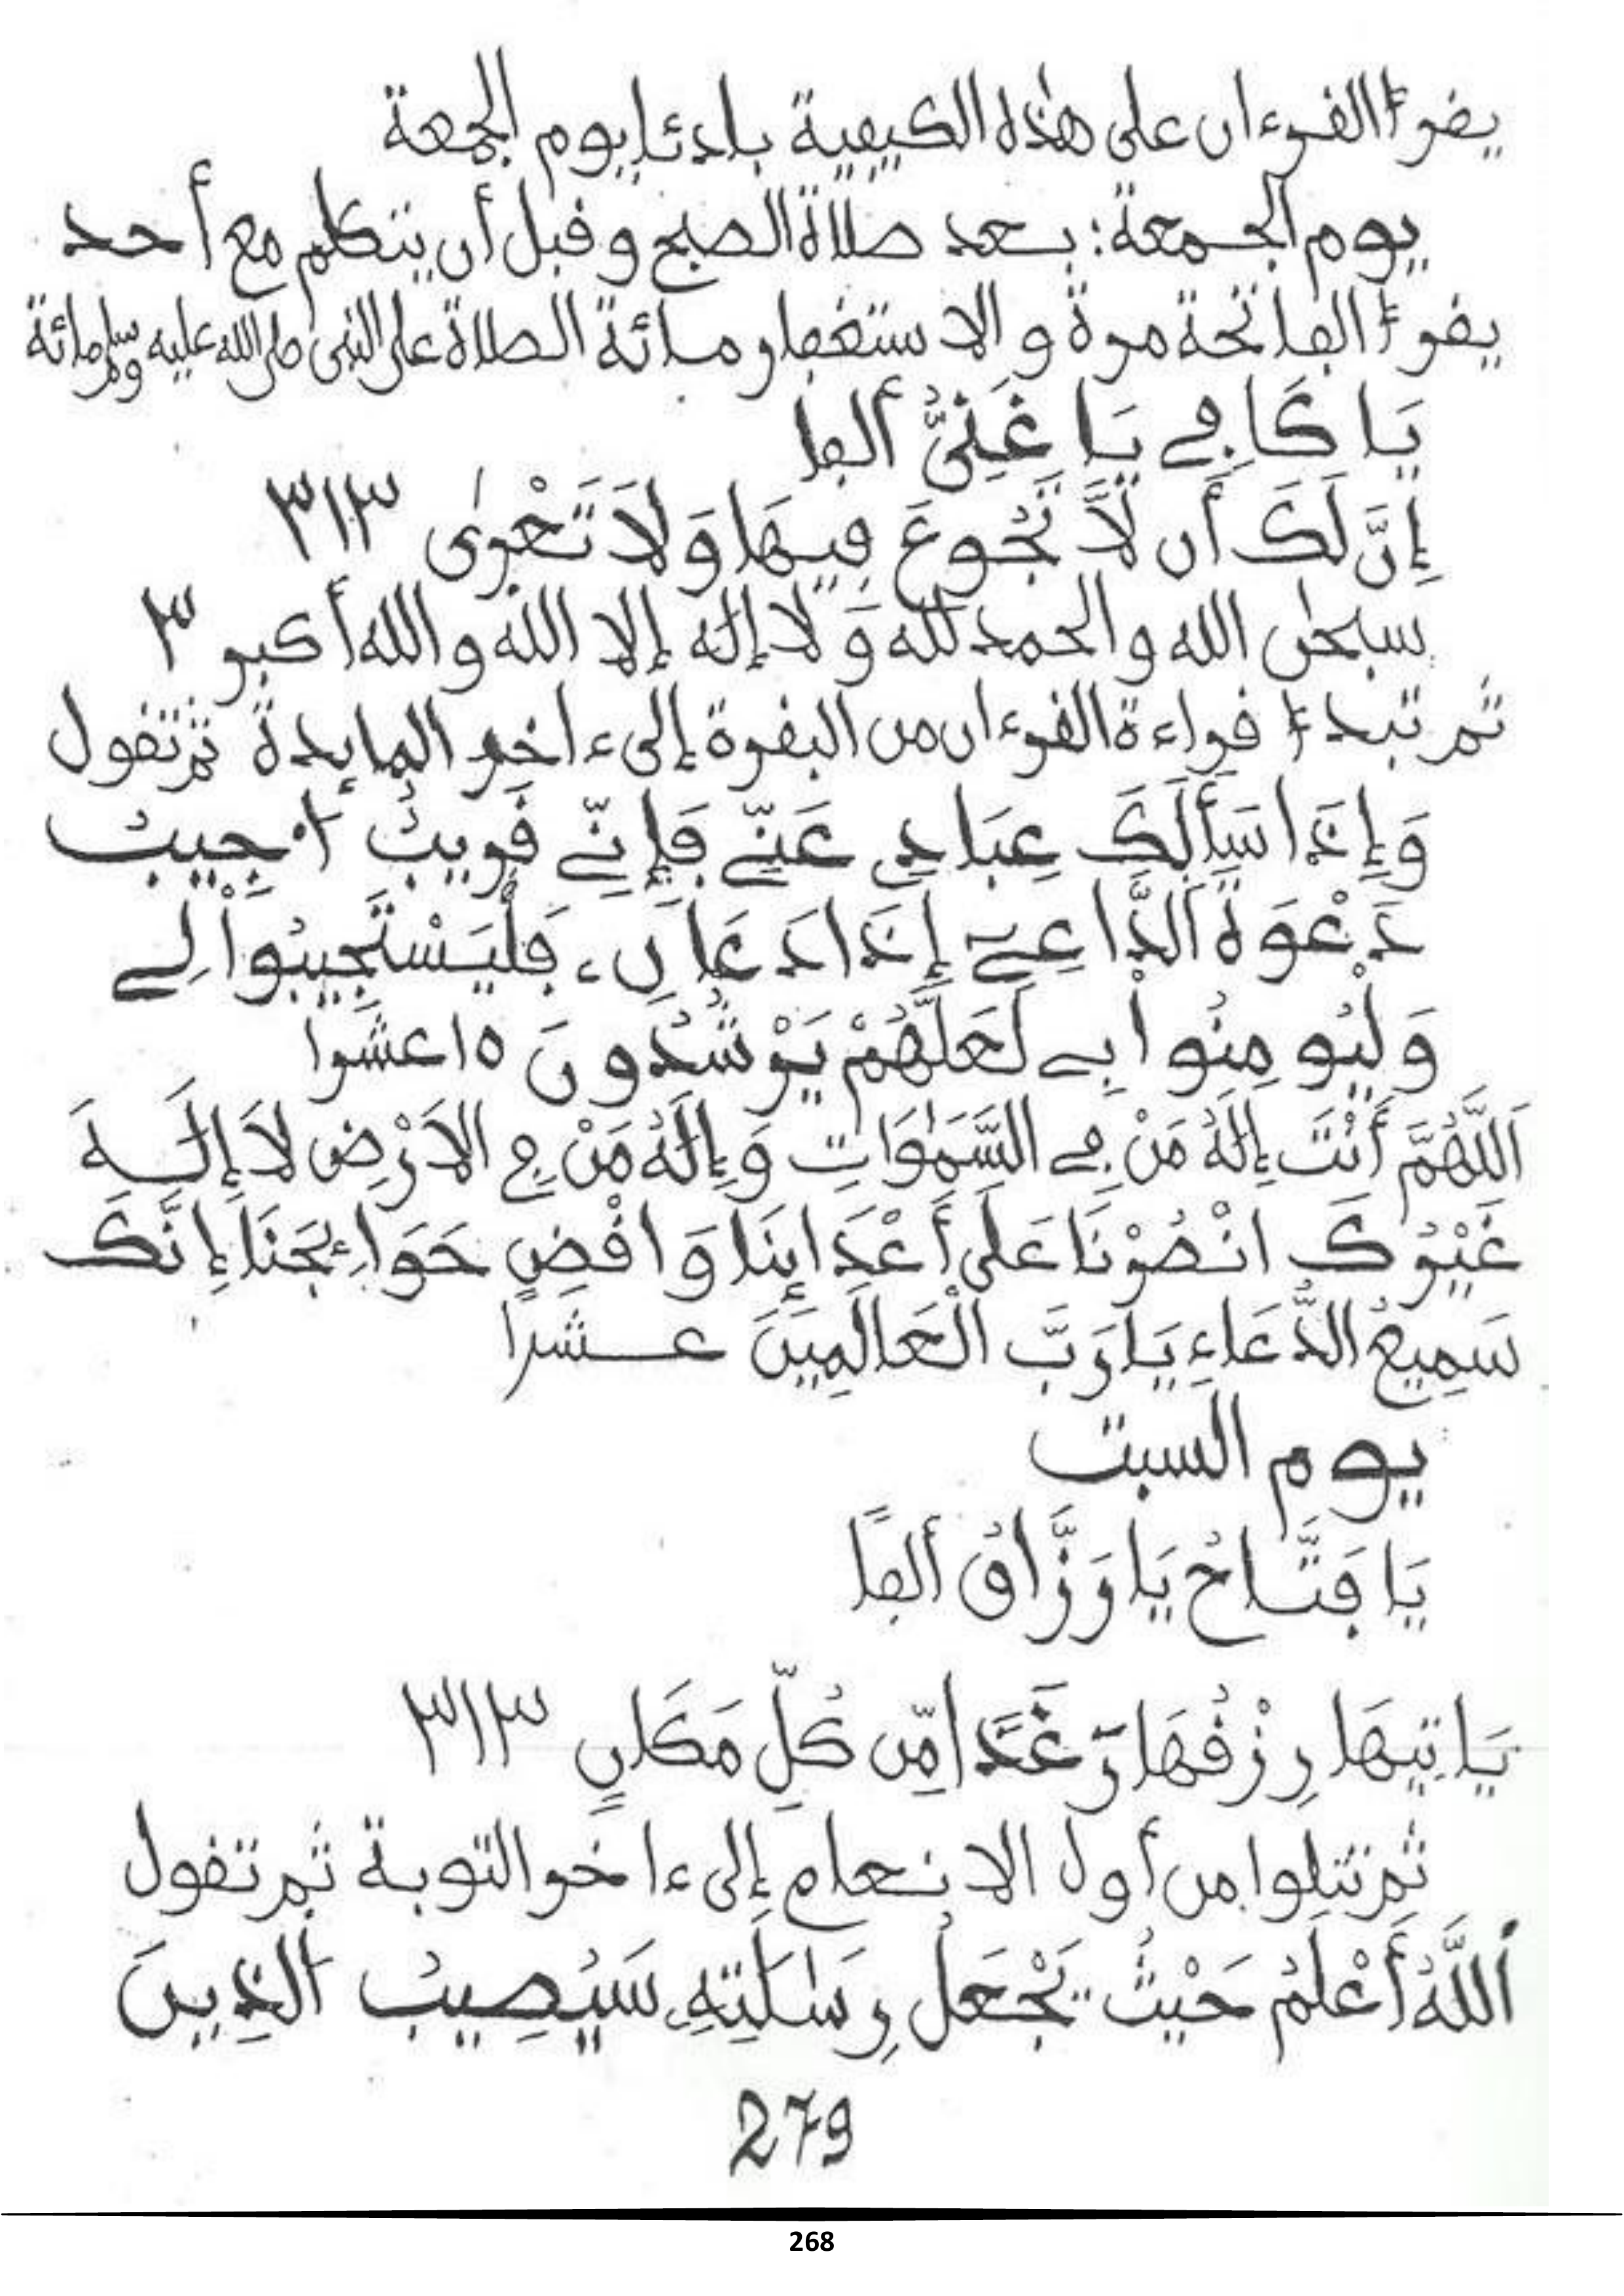 يقرأ القرءان على هذه الكيفية بادئا بيوم الجمعة
يوم الجمعة: بعد صلاة الصبح وقبل أن يتكلم مع أحد
يقرأ الفاتحة مرة والاستغفار مائة الصلاة على النبى صلى الله عليه وسلم مائة
يَا كَافِي يَا غَنِيُّ ألفا
إِنَّ لَكَ أَن لَّا تَجُوعَ فِيهَا وَلَا تَعْرَىٰ ٣١٣
سبحٰن الله والحمد لله وَلا إلٰه إلا الله والله أكبر ٣
ثم تبدأ قراءة القرءان من البقرة إلى ءاخر المايدة ثم تقول
وَإِذَا سَأَلَكَ عِبَادِي عَنِّي فَإِنِّي قَرِيبٌ ا۟جِيبُ
دَعْوَةَ اَلدَّاعِۦٓ إِذَا دَعَانِۦ فَلْيَسْتَجِيبُواْ لِي
وَلْيُومِنُواْ بِي لَعَلَّهُمْ يَرْشُدُونَ ١٥ عشرا
اَللَّهُمَّ أَنْتَ إِلَٰهُ مَنْ فِي السَّمَٰوَاتِ وَإِلَٰهُ مَنْ فِي الاَرْضِ لَا إِلَٰهَ
غَيْرُكَ انْصُرْنَا عَلَى أَعْدَائِنَا وَاقْضِ حَوَائِجَنَا إِنَّكَ
سَمِيعُ الدُّعَاءِ يَا رَبَّ الْعَالَمِينَ عشرا
يوم السبت
يَا فَتَّاحُ يَا رَزَّاقُ ألفًا
يَاتِيهَا رِزْقُهَا رَغَدًا مِّن كُلِّ مَكَانٍ ٣١٣
ثم تتلوا من أول الانعام إلى ءاخر التوبة ثم تقول
اَللَّهُ أَعْلَمُ حَيْثُ يَجْعَلُ رِسَٰلَٰتِهِۦ سَيُصِيبُ الذِينَ
279
268